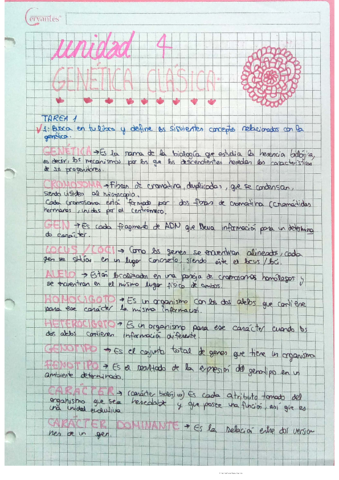 Cervantes
unidad 4
GENÉTICA CLÁSICA.
TAREA 1
1- Busca en tu libros y define los siguientes conceptos relacionados con la
genética.
GENÉTICA → Es la rama de la biología que estudia la herencia biológica,
es decir, los mecanismos por los que los descendientes heredan las características
de sus progenitores.
CROMOSOMA → Fibras de cromatina, duplicadas, que se condensan,
siendo visibles al microscopio.
Cada cromosoma está formado por dos fibras de cromatina (cromátidas
hermanas, unidas por el centrómero.
GEN → Es cada fragmento de ADN que lleva información para un determina
do carácter.
LOCUS / LOCI → Como los genes se encuentran alineados, cada
gen se sitúa en un lugar concreto, siendo este el locus / loci.
ALELO → Están localizados en una pareja de cromosomas homólogos y
se encuentran en el mismo lugar físico de ambos.
HOMOCIGOTO → Es un organismo con los dos alelos que contiene
para ese carácter la misma información.
HETEROCIGOTO → Es un organismo para ese carácter cuando los
dos alelos contienen información diferente.
GENOTIPO → Es el conjunto total de genes que tiene un organismo
FENOTIPO → Es el resultado de la expresión del genotipo en un
ambiente determinado.
CARÁCTER → (carácter biológico) Es cada atributo tomado del
organismo que sea heredable y que posee una función, así que es
una unidad evolutiva.
CARÁCTER DOMINANTE → Es la relación entre dos versio-
nes de un gen.